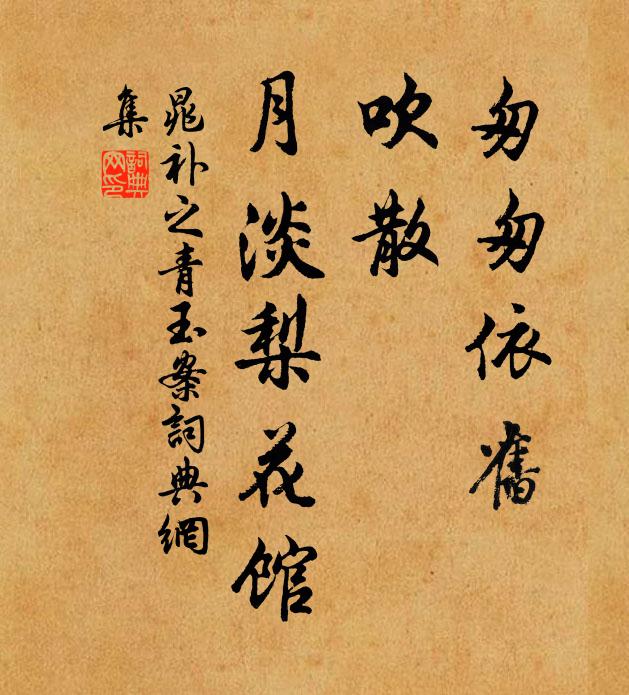 匆匆依舊
吹散
月淡梨花館
晁补之青玉案詞典網
集
詞典網印